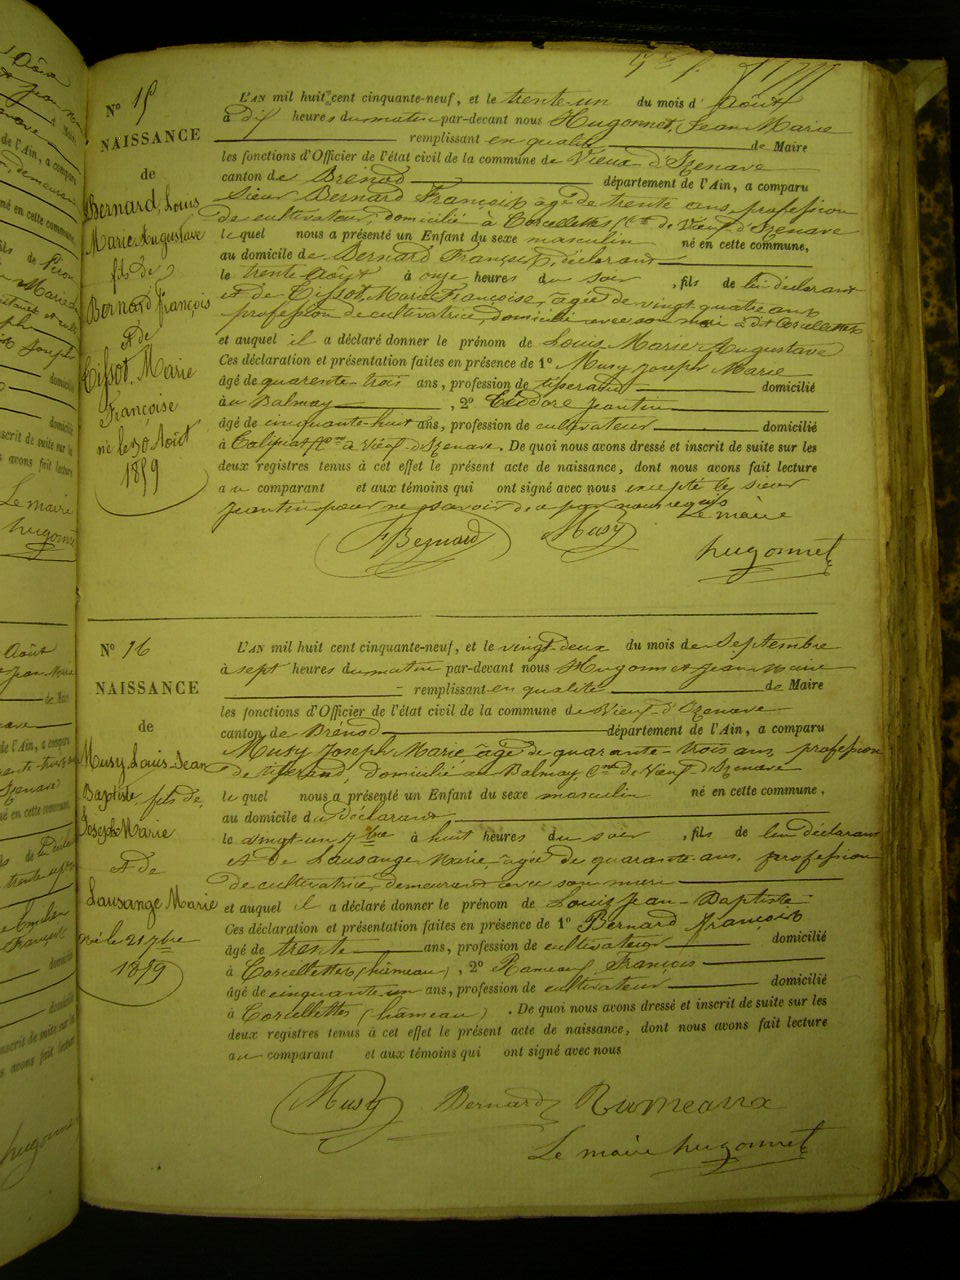 N° 15
NAISSANCE
de
Bernard, Louis
Marie Augustave
fils de
Bernard François
et de
Tissot, Marie
Françoise
né le 30 Août
1859
L'AN mil huit cent cinquante-neuf, et le trente-un du mois d'Août
à dix heures du matin par-devant nous Hugonnet, Jean Marie
remplissant en qualité de Maire
les fonctions d'Officier de l'état civil de la commune de Vieux-d'Izenave
canton de Brénod département de l'Ain, a comparu
sieur Bernard François âgé de trente ans, profession
de cultivateur, domicilié à Corcellettes, Cne de Vieux d'Izenave
lequel nous a présenté un Enfant du sexe masculin né en cette commune,
au domicile de Bernard François, déclarant
le trente Août à onze heures du soir, fils de lui déclarant
et de Tissot, Marie Françoise, âgée de vingt quatre ans
profession de cultivatrice, domicilié avec son mari à dit Corcellettes
et auquel il a déclaré donner le prénom de Louis Marie Augustave
Ces déclaration et présentation faites en présence de 1° Musy Joseph Marie
âgé de quarante-trois ans, profession de tisserand domicilié
à au Balmay, 2° Jeantin
âgé de cinquante-huit ans, profession de cultivateur domicilié
à Vieux d'Izenave. De quoi nous avons dressé et inscrit de suite sur les
deux registres tenus à cet effet le présent acte de naissance, dont nous avons fait lecture
au comparant et aux témoins qui ont signé avec nous excepté le sieur
Jeantin pour ne savoir de ce par nous requis
Le maire
F Bernard Musy hugonnet
N° 16
NAISSANCE
de
Musy, Louis-Jean
Baptiste, fils de
Joseph Marie
et de
Lausange Marie
né le 21 7bre
1859
L'AN mil huit cent cinquante-neuf, et le vingt deux du mois de Septembre
à sept heures du matin par-devant nous Hugonnet Jean Marie
remplissant en qualité de Maire
les fonctions d'Officier de l'état civil de la commune de Vieux-d'Izenave
canton de Brénod département de l'Ain, a comparu
Musy Joseph Marie, âgé de quarante-trois ans, profession
de tisserand, domicilié au Balmay Cne de Vieux-d'Izenave
lequel nous a présenté un Enfant du sexe masculin né en cette commune,
au domicile du déclarant
le vingt-un 7bre à huit heures du soir, fils de lui déclarant
et de Lausange Marie, âgée de quarante ans, profession
de cultivatrice, demeurant avec son mari
et auquel il a déclaré donner le prénom de Louis Jean-Baptiste
Ces déclaration et présentation faites en présence de 1° Bernard François
âgé de trente ans, profession de cultivateur domicilié
à Corcellettes (hameau), 2° Rameaux François
âgé de cinquante-un ans, profession de cultivateur domicilié
à Corcellettes (hameau). De quoi nous avons dressé et inscrit de suite sur les
deux registres tenus à cet effet le présent acte de naissance, dont nous avons fait lecture
au comparant et aux témoins qui ont signé avec nous
Musy Bernard Rameaux
Le maire hugonnet